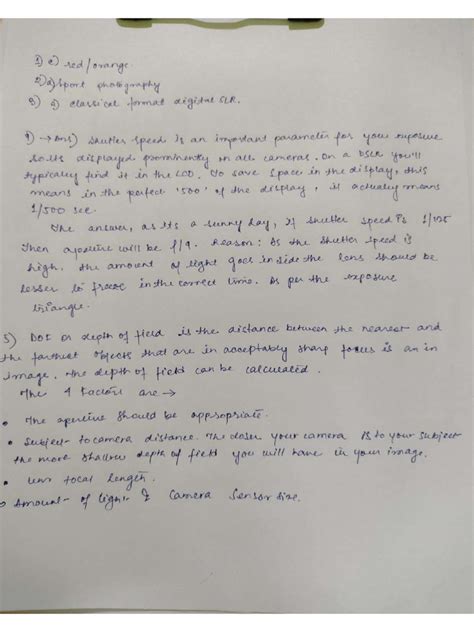 1) c) red/orange.
2) d) Sport photography
3) d) classical format digital SLR.
4) → Ans) Shutter speed is an important parameter for your exposure
so its displayed prominently on all cameras. On a DSLR you'll
typically find it in the LCD. To save space in the display, this
means in the perfect '500' of the display, it actually means
1/500 sec.
The answer, as its a sunny day, if shutter speed is 1/125
Then aperture will be f/9. Reason: As the shutter speed is
high. the amount of light goes inside the lens should be
lesser to freeze in the correct time. As per the exposure
triangle.
5) DOF or depth of field is the distance between the nearest and
the farthest objects that are in acceptably sharp focus is an in
image. The depth of field can be calculated.
The 4 factors are →
• The aperture should be appropriate.
• Subject-to camera distance. The closer your camera is to your subject
the more shallow depth of field you will have in your image.
• Lens focal length.
• Amount of light & camera sensor size.